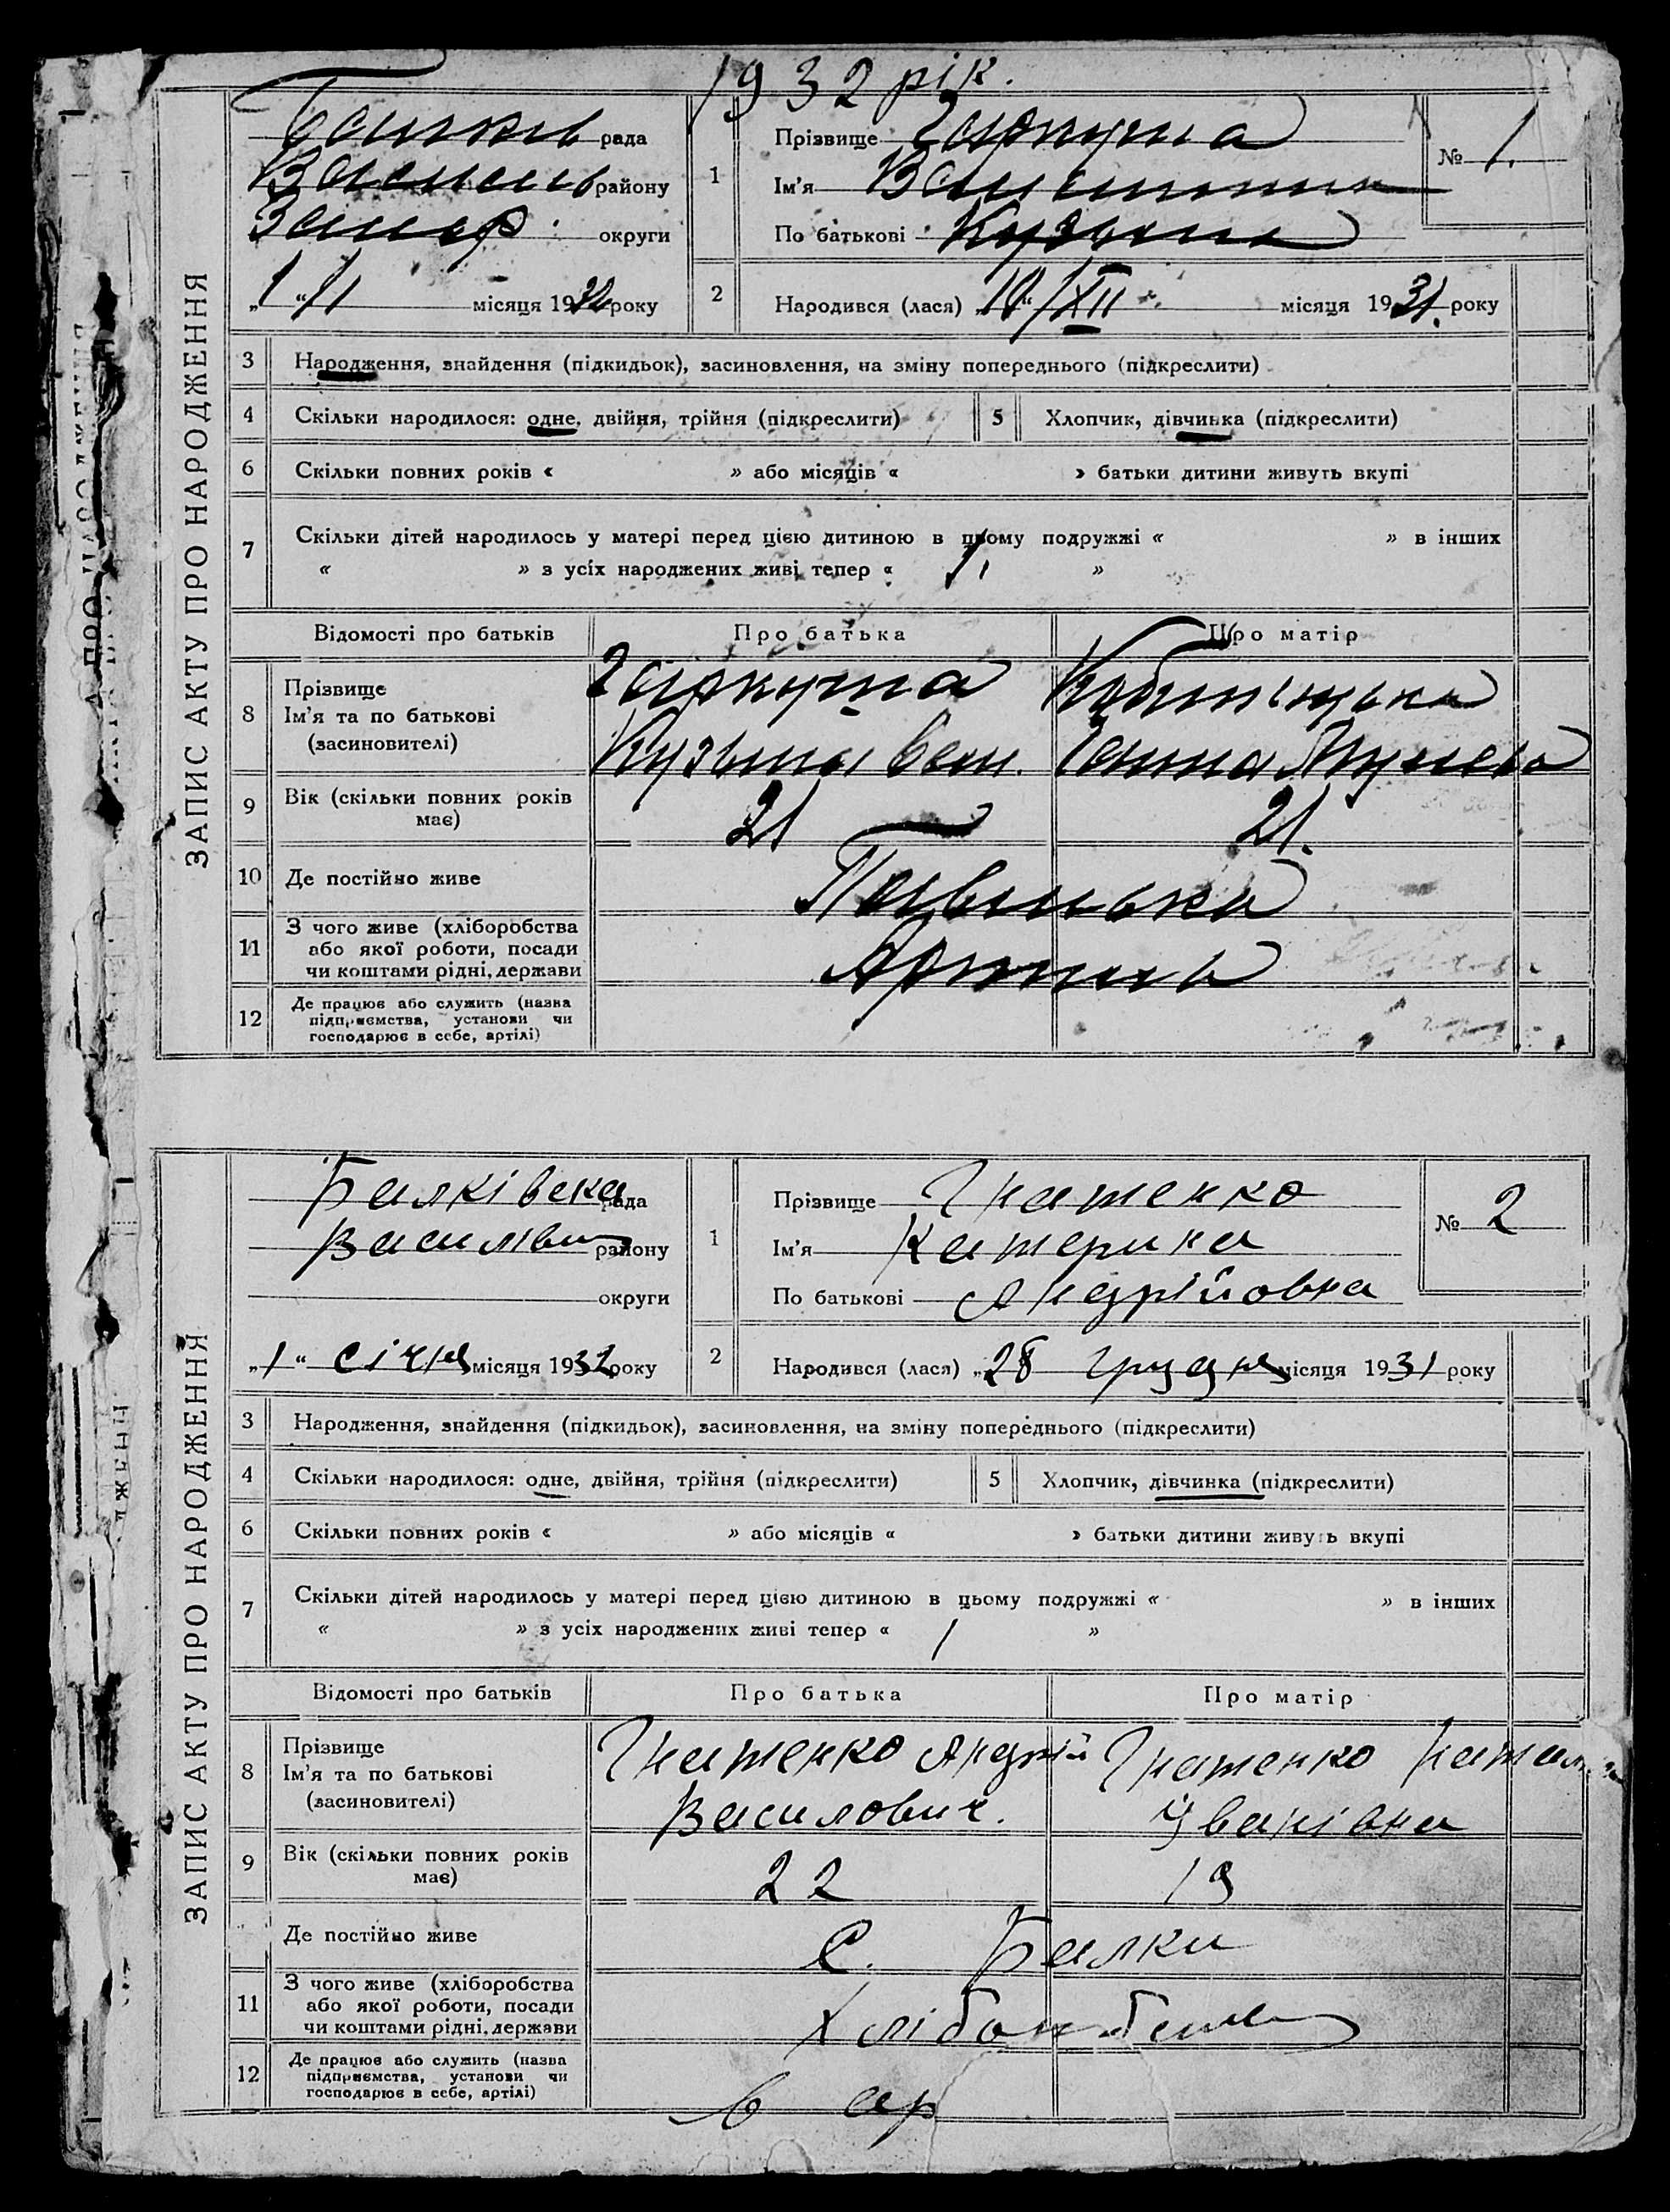 1932 рік.
ЗАПИС АКТУ ПРО НАРОДЖЕННЯ
рада
району
округи
„1“ /I місяця 1932 року
1 Прізвище Гаркуша
Ім'я Валентина
По батькові
№ 1.
2 Народився (лася) „10“/XII місяця 1931. року
3 Народження, знайдення (підкидьок), засиновлення, на зміну попереднього (підкреслити)
4 Скільки народилося: одне, двійня, трійня (підкреслити) 5 Хлопчик, дівчинка (підкреслити)
6 Скільки повних років « » або місяців « » батьки дитини живуть вкупі
7 Скільки дітей народилось у матері перед цією дитиною в цьому подружжі « » в інших
« » з усіх народжених живі тепер « 1 »
Відомості про батьків Про батька Про матір
8 Прізвище
Ім'я та по батькові
(засиновителі)
Гаркуша
Кузьма
Ганна
9 Вік (скільки повних років має) 21 21.
10 Де постійно живе
11 З чого живе (хліборобства
або якої роботи, посади
чи коштами рідні, держави
12 Де працює або служить (назва
підприємства, установи чи
господарює в себе, артілі)
ЗАПИС АКТУ ПРО НАРОДЖЕННЯ
Балківська рада
Василівськ району
округи
„1“ січня місяця 1932 року
1 Прізвище Гнатенко
Ім'я Катерина
По батькові Андрійовна
№ 2
2 Народився (лася) „28 грудня місяця 1931 року
3 Народження, знайдення (підкидьок), засиновлення, на зміну попереднього (підкреслити)
4 Скільки народилося: одне, двійня, трійня (підкреслити) 5 Хлопчик, дівчинка (підкреслити)
6 Скільки повних років « » або місяців « » батьки дитини живуть вкупі
7 Скільки дітей народилось у матері перед цією дитиною в цьому подружжі « » в інших
« » з усіх народжених живі тепер « 1 »
Відомості про батьків Про батька Про матір
8 Прізвище
Ім'я та по батькові
(засиновителі)
Гнатенко Андрій
Василович.
Гнатенко Наталія
Іванівна
9 Вік (скільки повних років має) 22 19
Де постійно живе с. Балки
11 З чого живе (хліборобства
або якої роботи, посади
чи коштами рідні, держави
12 Де працює або служить (назва
підприємства, установи чи
господарює в себе, артілі)
в ар